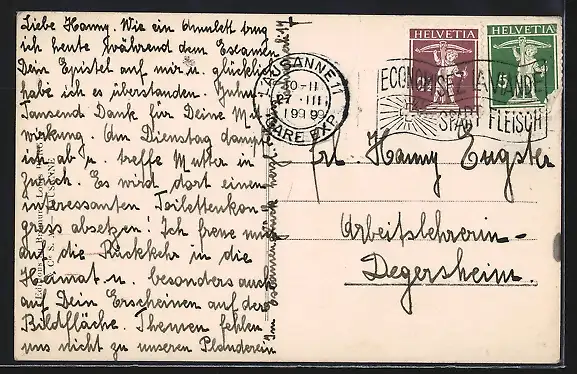 Liebe Hanny. Wie ein Amulett trug
ich heute während dem Examen
Dein Epistel auf mir u. glücklich
habe ich es überstanden. Juhui
Tausend Dank für Deine Mit-
wirkung. Am Dienstag dampfe
ich ab u. treffe Mutter in
Zürich. Es wird dort einen
interessanten Toilettenkon
gress absetzen! Ich freue mich
auf die Rückkehr in die
Heimat u. besonders auch
auf Dein Erscheinen auf der
Bildfläche. Themen fehlen
uns nicht zu unseren Plauderein
HELVETIA
HELVETIA
LAUSANNE 11
GARE EXP.
ECONOMISEZ LA VIANDE
SPART FLEISCH
Frl. Hanny Engster
Arbeitslehrerin-
Degersheim.